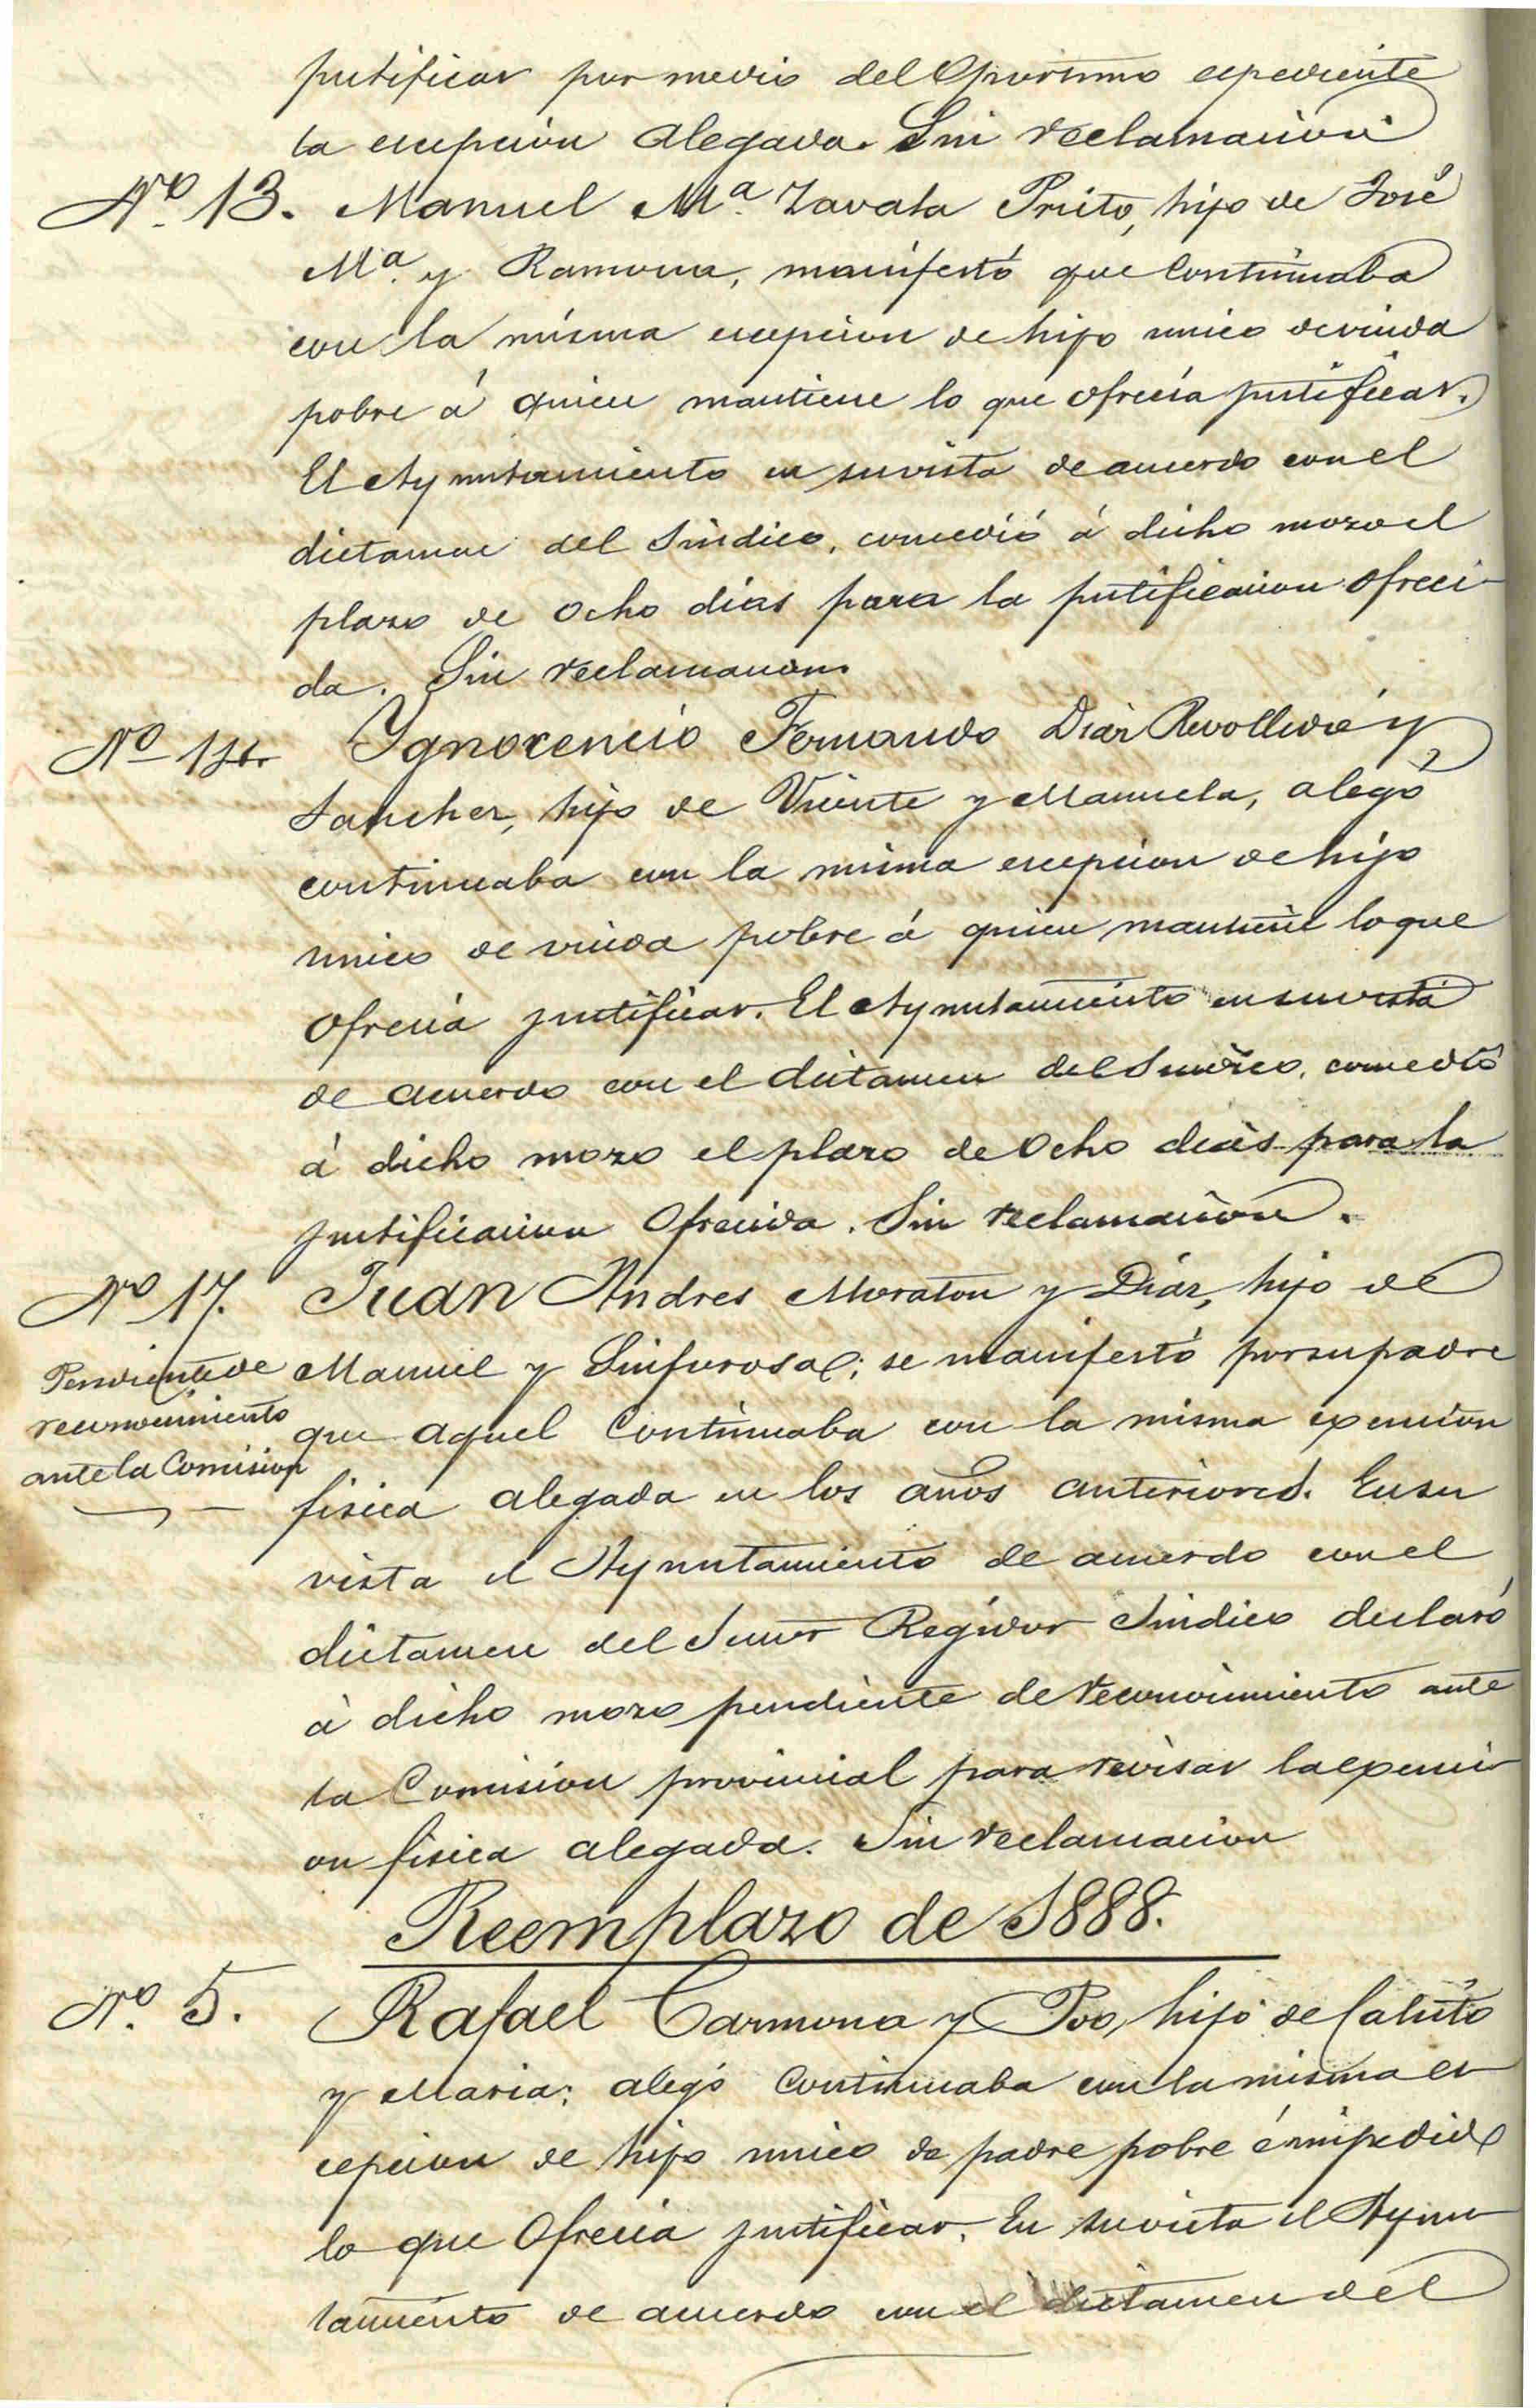 justificar por medio del Oportuno expediente
la escepcion alegada. Sin reclamacion
Nº 13. Manuel Mª Zavala Prieto, hijo de José
Mª y Ramona, manifestó que continuaba
con la misma escepcion de hijo unico de viuda
pobre á quien mantiene lo que ofrecia justificar.
El Ayuntamiento en su vista de acuerdo con el
dictamen del Sindico, concedió á dicho mozo el
plazo de ocho días para la justificacion ofreci-
da. Sin reclamacion.
Nº 14. Ygnocencio Fernando Diaz Revolledo y
Sanchez, hijo de Vicente y Manuela, alegó
continuaba con la misma escepcion de hijo
unico de viuda pobre á quien mantiene lo que
Ofrecia justificar. El Ayuntamiento en su vista
de acuerdo con el dictamen del Sindico, concedió
á dicho mozo el plazo de Ocho dias para la
justificacion Ofrecida. Sin reclamacion.
Nº 17. Juan Andres Moraton y Diaz, hijo de
Manuel y Sinforosa; se manifestó por su padre
que aquel Continuaba con la misma exencion
fisica alegada en los años anteriores. En su
vista el Ayuntamiento de acuerdo con el
dictamen del Señor Regidor Sindico declaró
á dicho mozo pendiente de reconocimiento ante
la Comision provincial para revisar la exenci-
on fisica alegada. Sin reclamacion
Pendiente de
reconocimiento
ante la Comision
Reemplazo de 1888.
Nº 5. Rafael Carmona y Poo, hijo de Calisto
y Maria; alegó Continuaba con la misma es-
cepcion de hijo unico de padre pobre é impedido
lo que Ofrecia justificar. En su vista el Ayun-
tamiento de acuerdo con el dictamen del